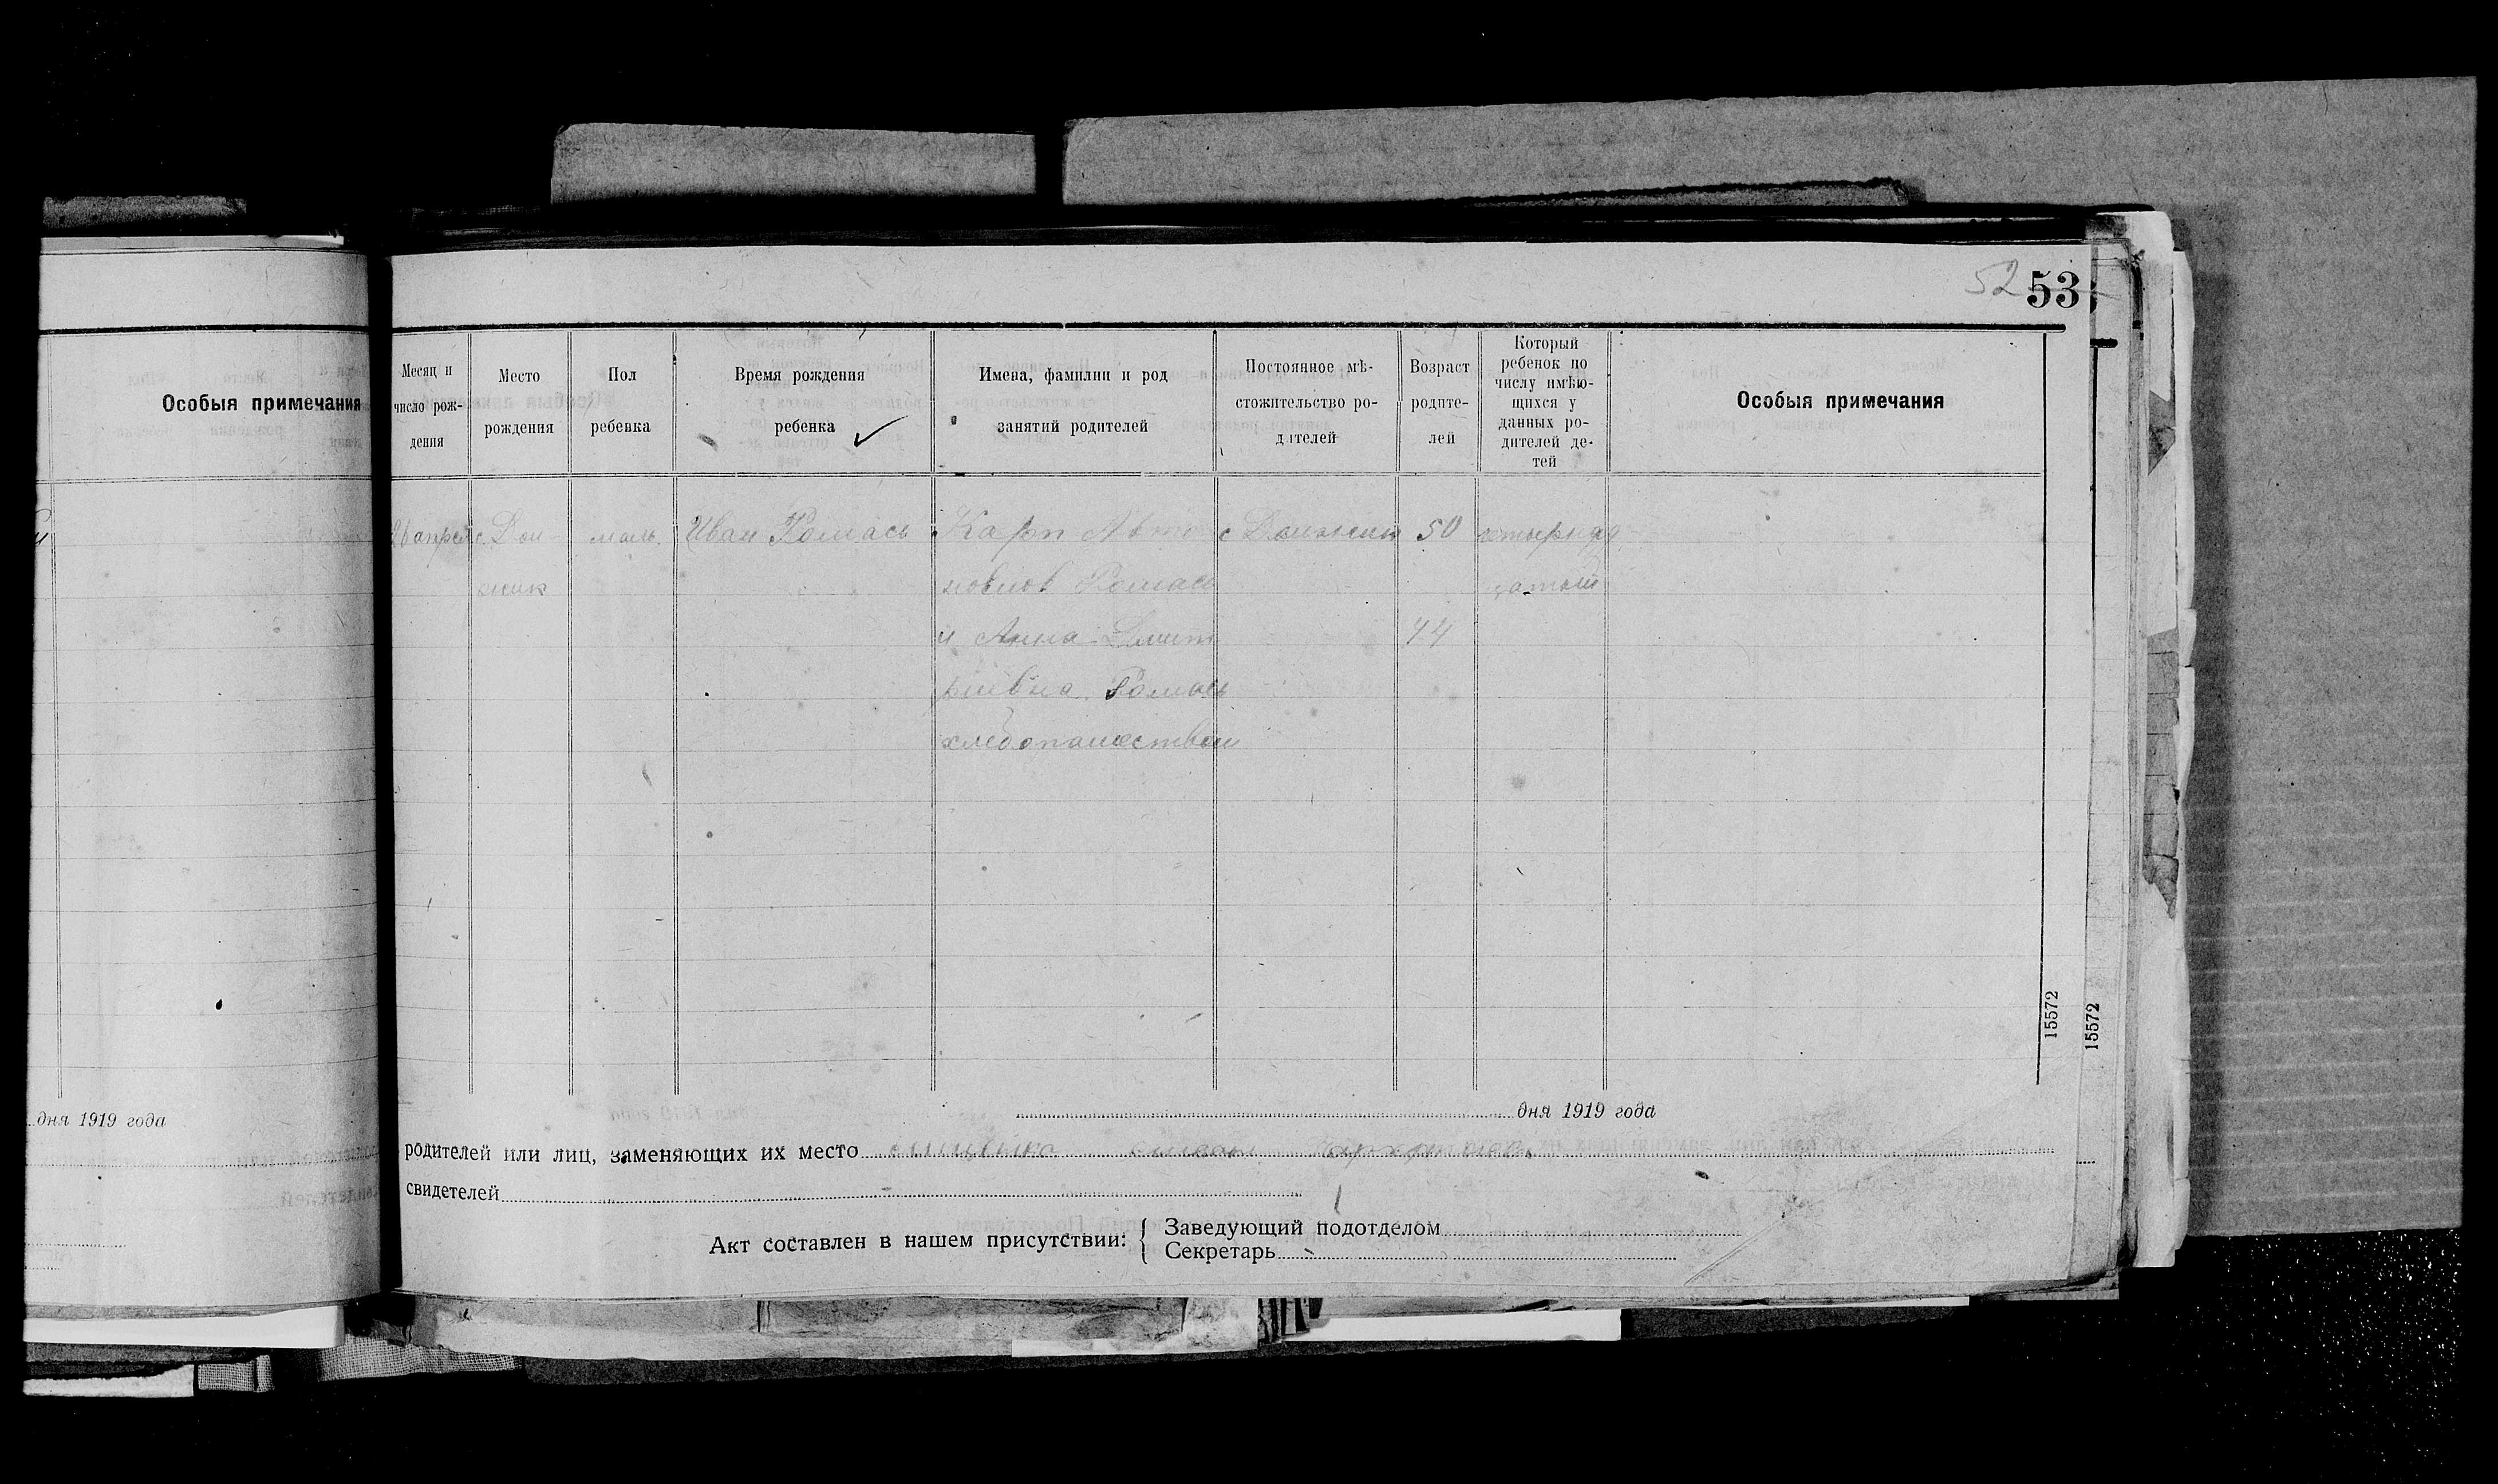 52 53
Особыя примечания
Месяц и
число рож-
дения
Место
рождения
Пол
ребенка
Время рождения
ребенка
Имена, фамилии и род
занятий родителей
Постоянное мѣ-
стожительство ро-
дителей
Возраст
родите-
лей
Который
ребенок по
числу имѣю-
щихся у
данных ро-
дителей де-
тей
Особыя примечания
26 апреля с. Дол- маль. Иван Ромась Карп Авто с Должик 50 четырнад
жик номов Ромась цатый
и Анна Дмит 44
риевна Ромась
хлебопашеством
15572
15572
дня 1919 года
дня 1919 года
родителей или лиц, заменяющих их место
свидетелей
Акт составлен в нашем присутствии:
Заведующий подотделом
Секретарь